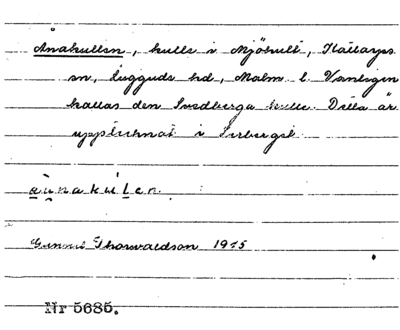 Ånakullen, kulle i Mjöhult, Kattarps
sn, Luggude hd, Malm. l. Vanligen
kallas den Svedberga kulle. Detta är
upptecknat i Serbergst.
Gunnar Thorvaldson 1915
Nr 5685.